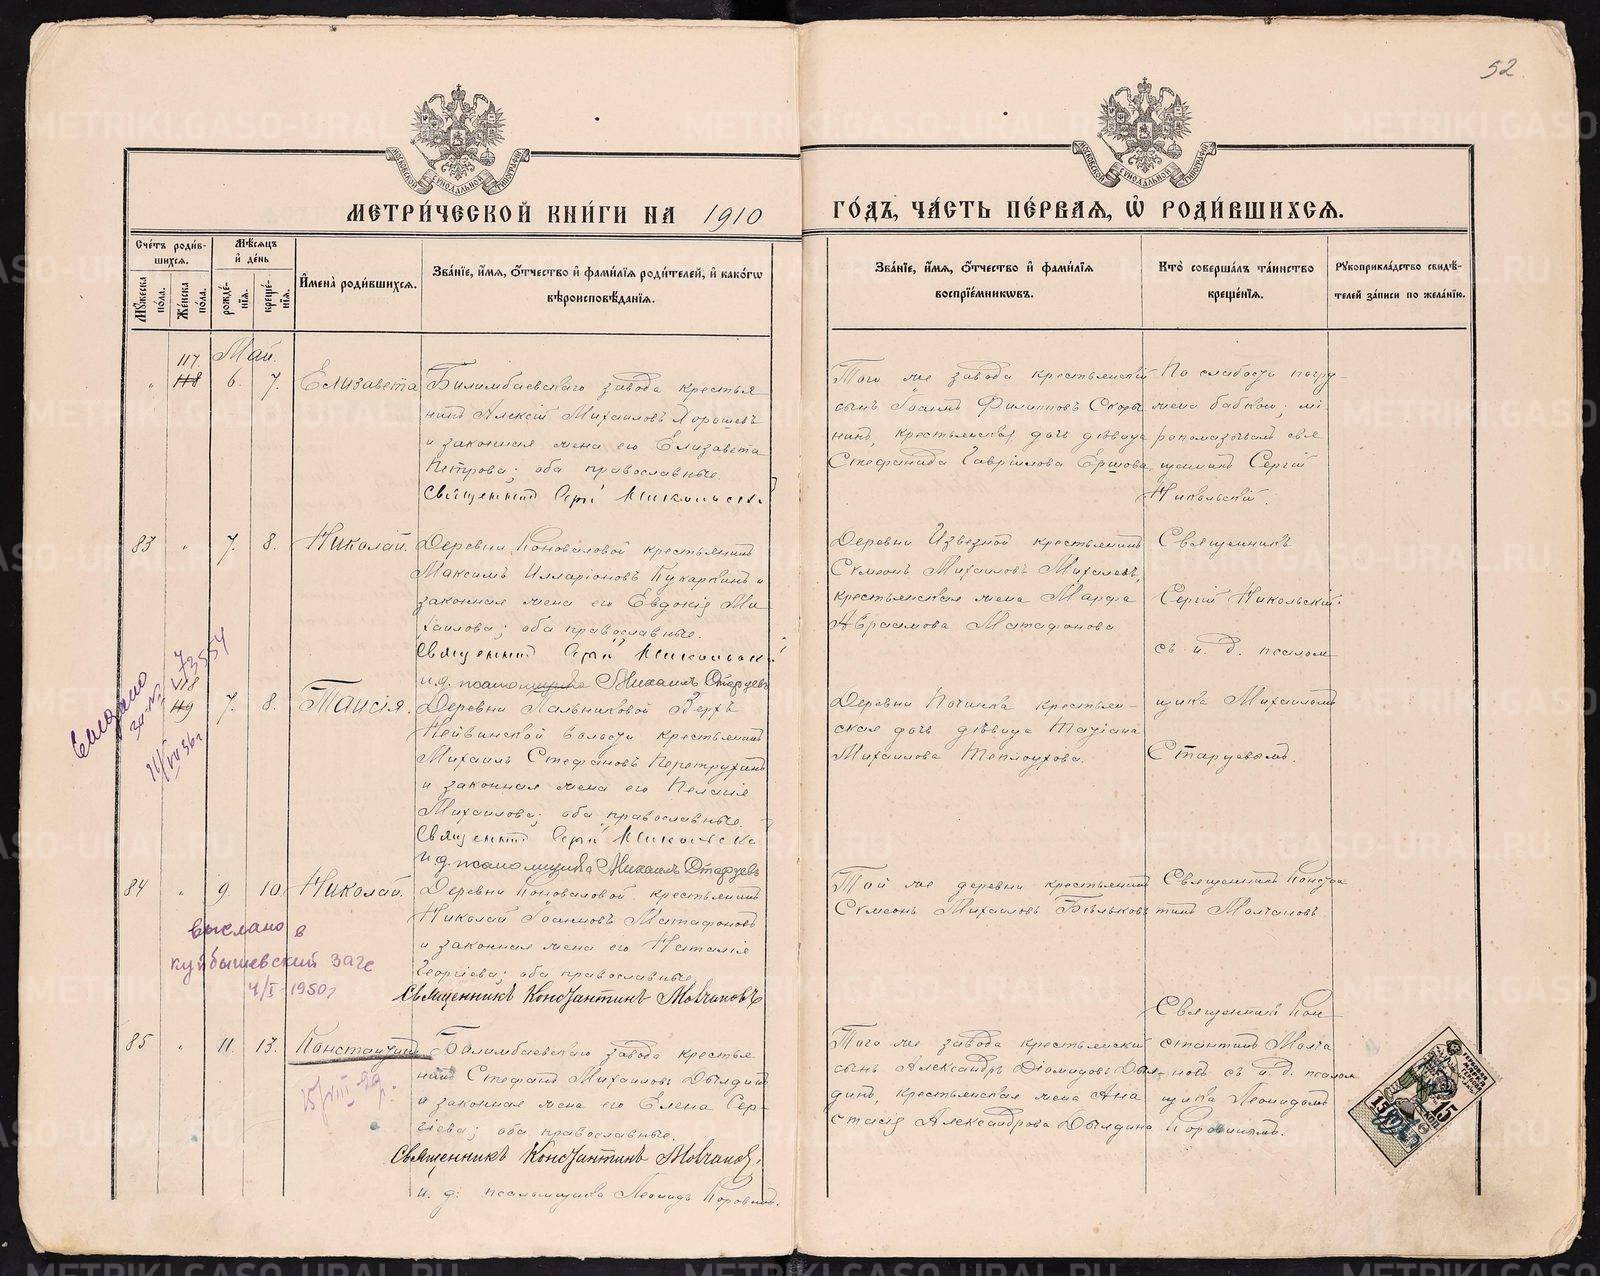 52.
МЕТРИ́ЧЕСКОЙ КНИ́ГИ НА 1910 ГО́ДЪ, ЧА́СТЬ ПЕ́РВАЯ, Ѡ РОДИ́ВШИХСЯ.
МОСКОВСКОЙ СУНОДАЛЬНОЙ ТИПОГРАФІИ
МОСКОВСКОЙ СУНОДАЛЬНОЙ ТИПОГРАФІИ
Сче́тъ роди́вшихся.
Мꙋ́жеска по́ла.
Же́нска по́ла.
Мѣ́сяцъ и҆ де́нь
рожде́нїя.
креще́нїя.
И҆мена̀ роди́вшихся.
Зва́нїе, и҆́мя, ѻ҆́тчество и҆ фами́лїя роди́телей, и҆ како́гѡ
вѣроисповѣ́данїя.
Зва́нїе, и҆́мя, ѻ҆́тчество и҆ фами́лїя
воспрїе́мникѡвъ.
Кто̀ соверша́лъ та́инство
креще́нїя.
Рꙋкоприкла́дство свидѣ́-
телей за́писи по жела́нїю.
Май.
117.
118
" 6. 7. Елизавета
Билимбаевскаго завода крестья
нинъ Алексій Михаиловъ Хорошевъ
и законная жена его Елизавета
Петрова; оба православные.
Священникъ Сергій Никольскій
Того же завода крестьянскій
сынъ Іоаннъ Филипповъ Скоры
нинъ, крестьянская дочь дѣвица
Стефанида Гавріилова Ершова
По слабости погру
жена бабкою; мі
ропомазочалъ свя
щенникъ Сергій
Никольскій.
83 " 7. 8. Николай.
Деревни Коноваловой крестьянинъ
Максимъ Илларіоновъ Кукаркинъ и
законная жена его Евдокія Ми
хаилова; оба православные.
Священникъ Сергій Никольскій
и. д. псаломщика Михаилъ Старцевъ
Деревни Извезной крестьянинъ
Сѵмеонъ Михаиловъ Михалевъ,
крестьянская жена Марфа
Авраамова Матафонова
Священникъ
Сергій Никольскій
съ и. д. псалом
щика Михаиломъ
Старцевымъ.
118
119
7. 8. Таисія.
Деревни Пальниковой Верхъ
Нейвинской волости крестьянинъ
Михаилъ Стефановъ Перетрухинъ
и законная жена его Пелагія
Михаилова; оба православные.
Священникъ Сергій Никольскій
и. д. псаломщика Михаилъ Старцевъ
Деревни Починка крестьян-
ская дочь дѣвица Татіана
Михаилова Теплоухова.
Выдано
за № 73554
11/VII 56 г
84 " 9. 10. Николай.
Деревни Коноваловой крестьянинъ
Николай Іоанновъ Матафоновъ
и законная жена его Наталія
Георгіева; оба православные
Священникъ Константинъ Молчановъ
Той же деревни крестьянинъ
Сѵмеонъ Михаиловъ Бѣльковъ
Священникъ Конста
тинъ Молчановъ.
выслано в
куйбышевский загс
4/I-1950г
85 " 11. 13. Константинъ
Билимбаевскаго завода крестья
нинъ Стефанъ Михаиловъ Дылдинъ
и законная жена его Елена Сер-
гіева; оба православные.
Священникъ Константинъ Молчановъ,
и. д. псаломщика Леонидъ Коровинъ.
Того же завода крестьянскій
сынъ Александръ Діомидовъ Дыл
динъ, крестьянская жена Ана
стасія Александрова Дылдина
Священникъ Кон
стантинъ Молча
новъ съ и. д. псалом
щика Леонидомъ
Коровинымъ.
15
15
METRIKI.GASO-URAL.RU